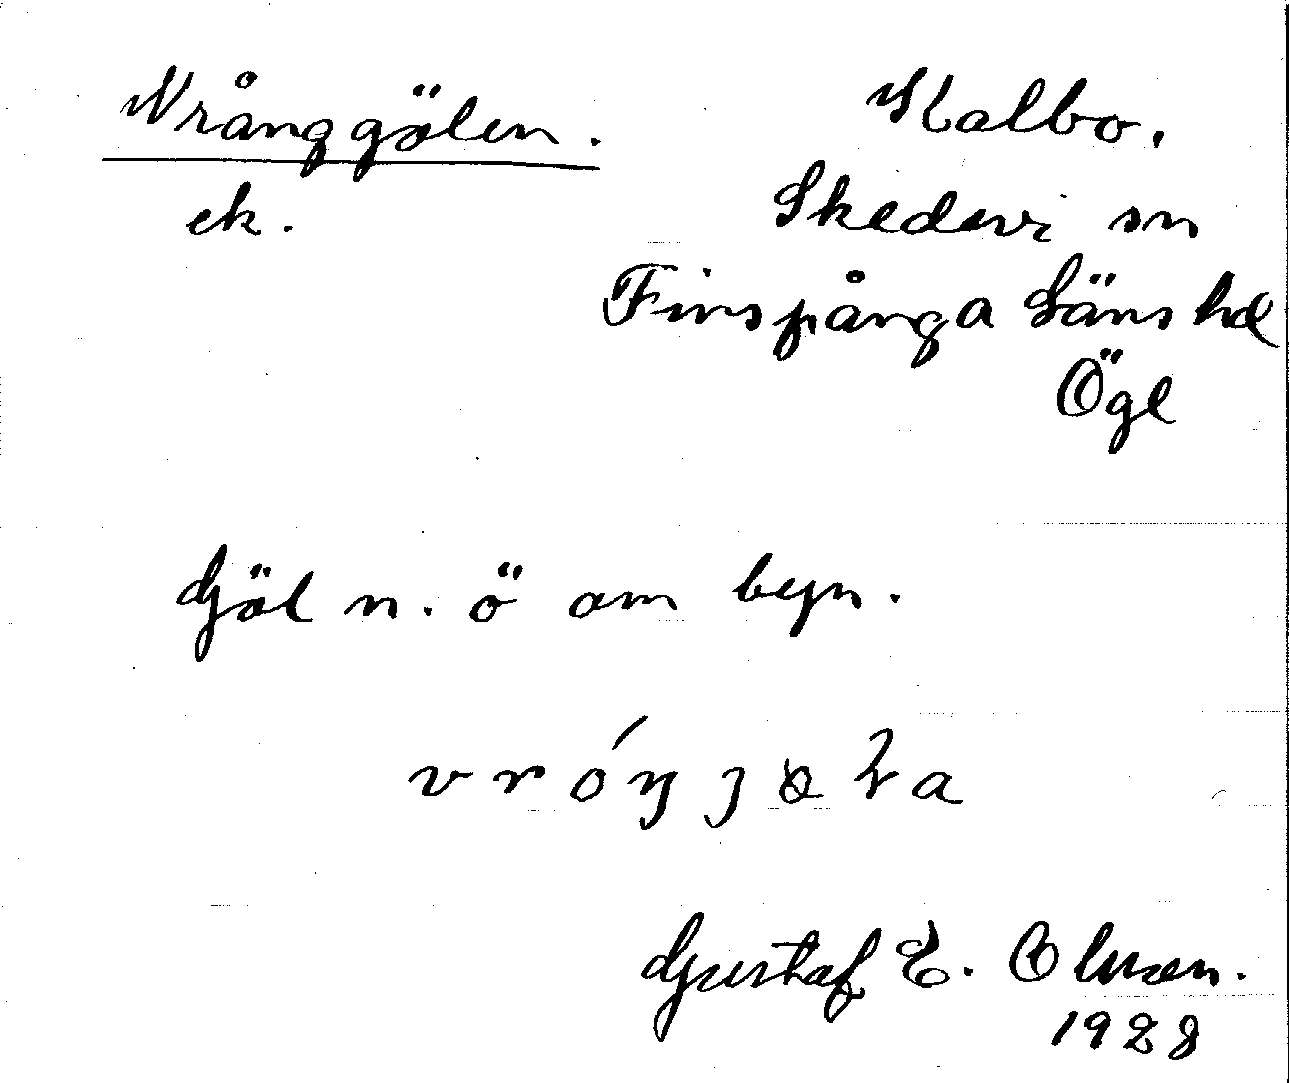 Vrånggölen. Kalbo.
ek. Skedevi sn
Finspånga Läns hd
Ögl
Göl n. ö om byn.
Gustaf E. Olsson.
1928